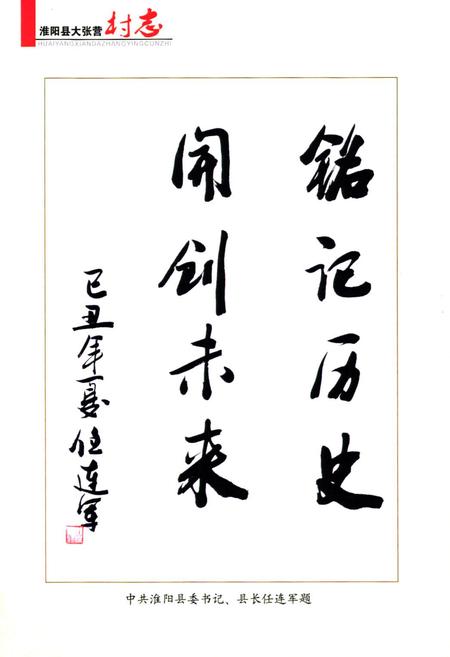 淮阳县大张营村志
HUAIYANGXIANDAZHANGYINGCUNZHI
铭记历史
开创未来
己丑年夏任连军
中共淮阳县委书记、县长任连军题